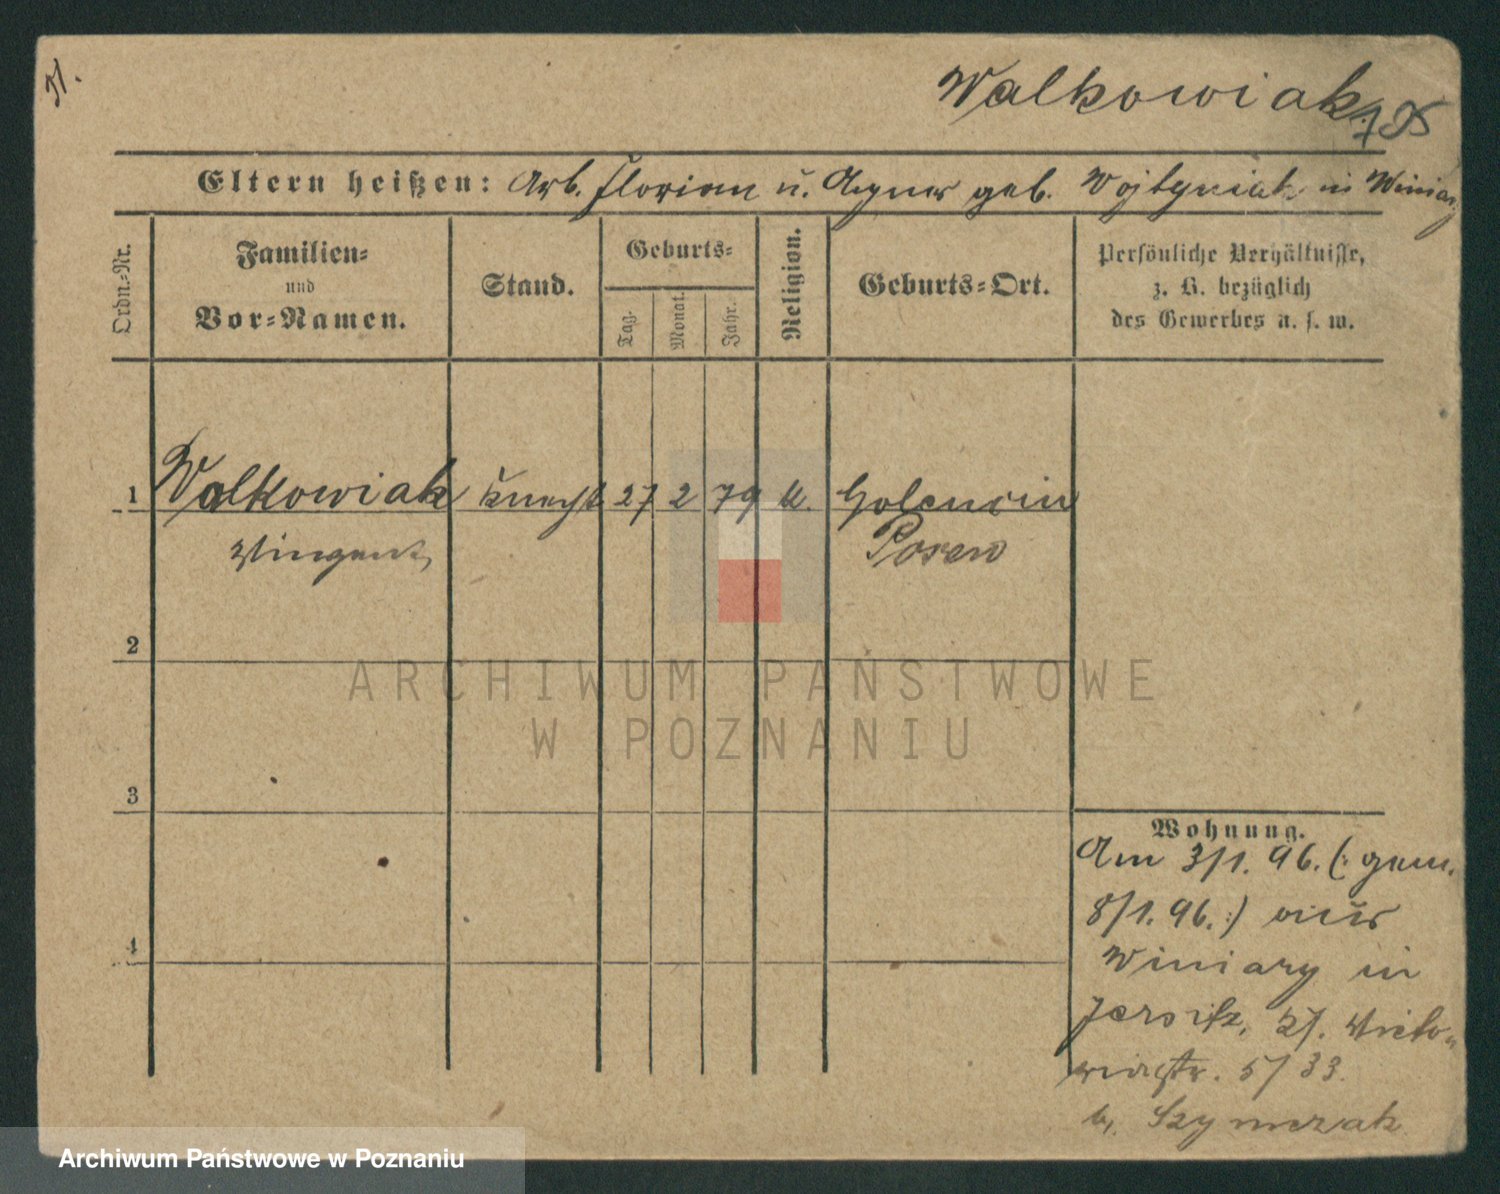 Walkowiak
Eltern heißen: Arb. Florian u. Agnes geb. Wojtyniak in Winiary
Ordn.-Nr.
Familien-
und
Vor-Namen.
Stand.
Geburts-
Tag.
Monat.
Jahr.
Religion.
Geburts-Ort.
Persönliche Verhältnisse,
z. B. bezüglich
des Gewerbes u. s. w.
1 Walkowiak Knecht 27 2 79 k. Golencin
Vinzent Posen
2
3
4
Wohnung.
Am 3/1. 96. (: gem.
8/1. 96. :) aus
Winiary in
Jersitz,
5/33.
b. Szymczak
ARCHIWUM PAŃSTWOWE
W POZNANIU
Archiwum Państwowe w Poznaniu